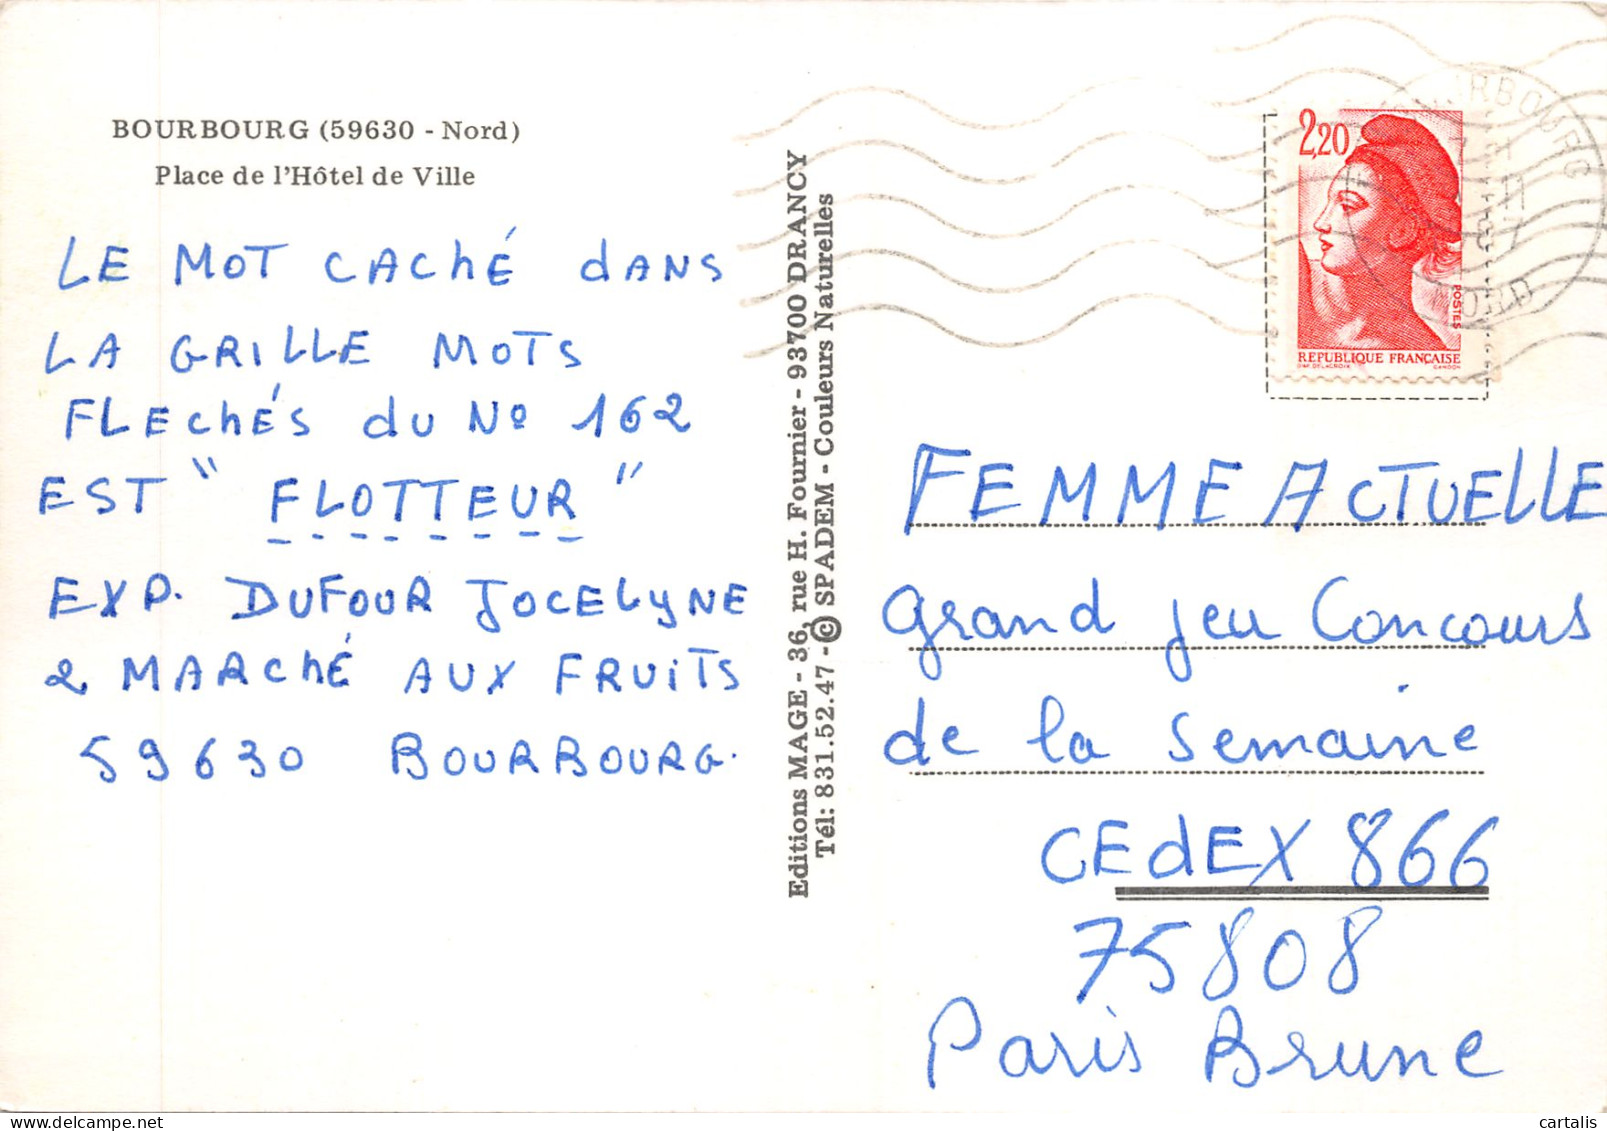 BOURBOURG (59630 - Nord)
Place de l'Hôtel de Ville
LE MOT CAChÉ dANS
LA GRILLE MOTS
FLEChÉS dU Nº 162
EST " FLOTTEUR "
EXP. DUFOUR JOCELyNE
2 MARChÉ AUX FRUiTS
59630 BOURBOURG.
Editions MAGE - 36, rue H. Fournier - 93700 DRANCY
Tél: 831.52.47 - © SPADEM - Couleurs Naturelles
BOURG
NORD
2,20
POSTES
REPUBLIQUE FRANÇAISE
D'AP. DELACROIX GANDON
FEMME ACTUELLE
grand jeu Concours
de la semaine
CEdEX 866
75808
Paris Brune
cartalis